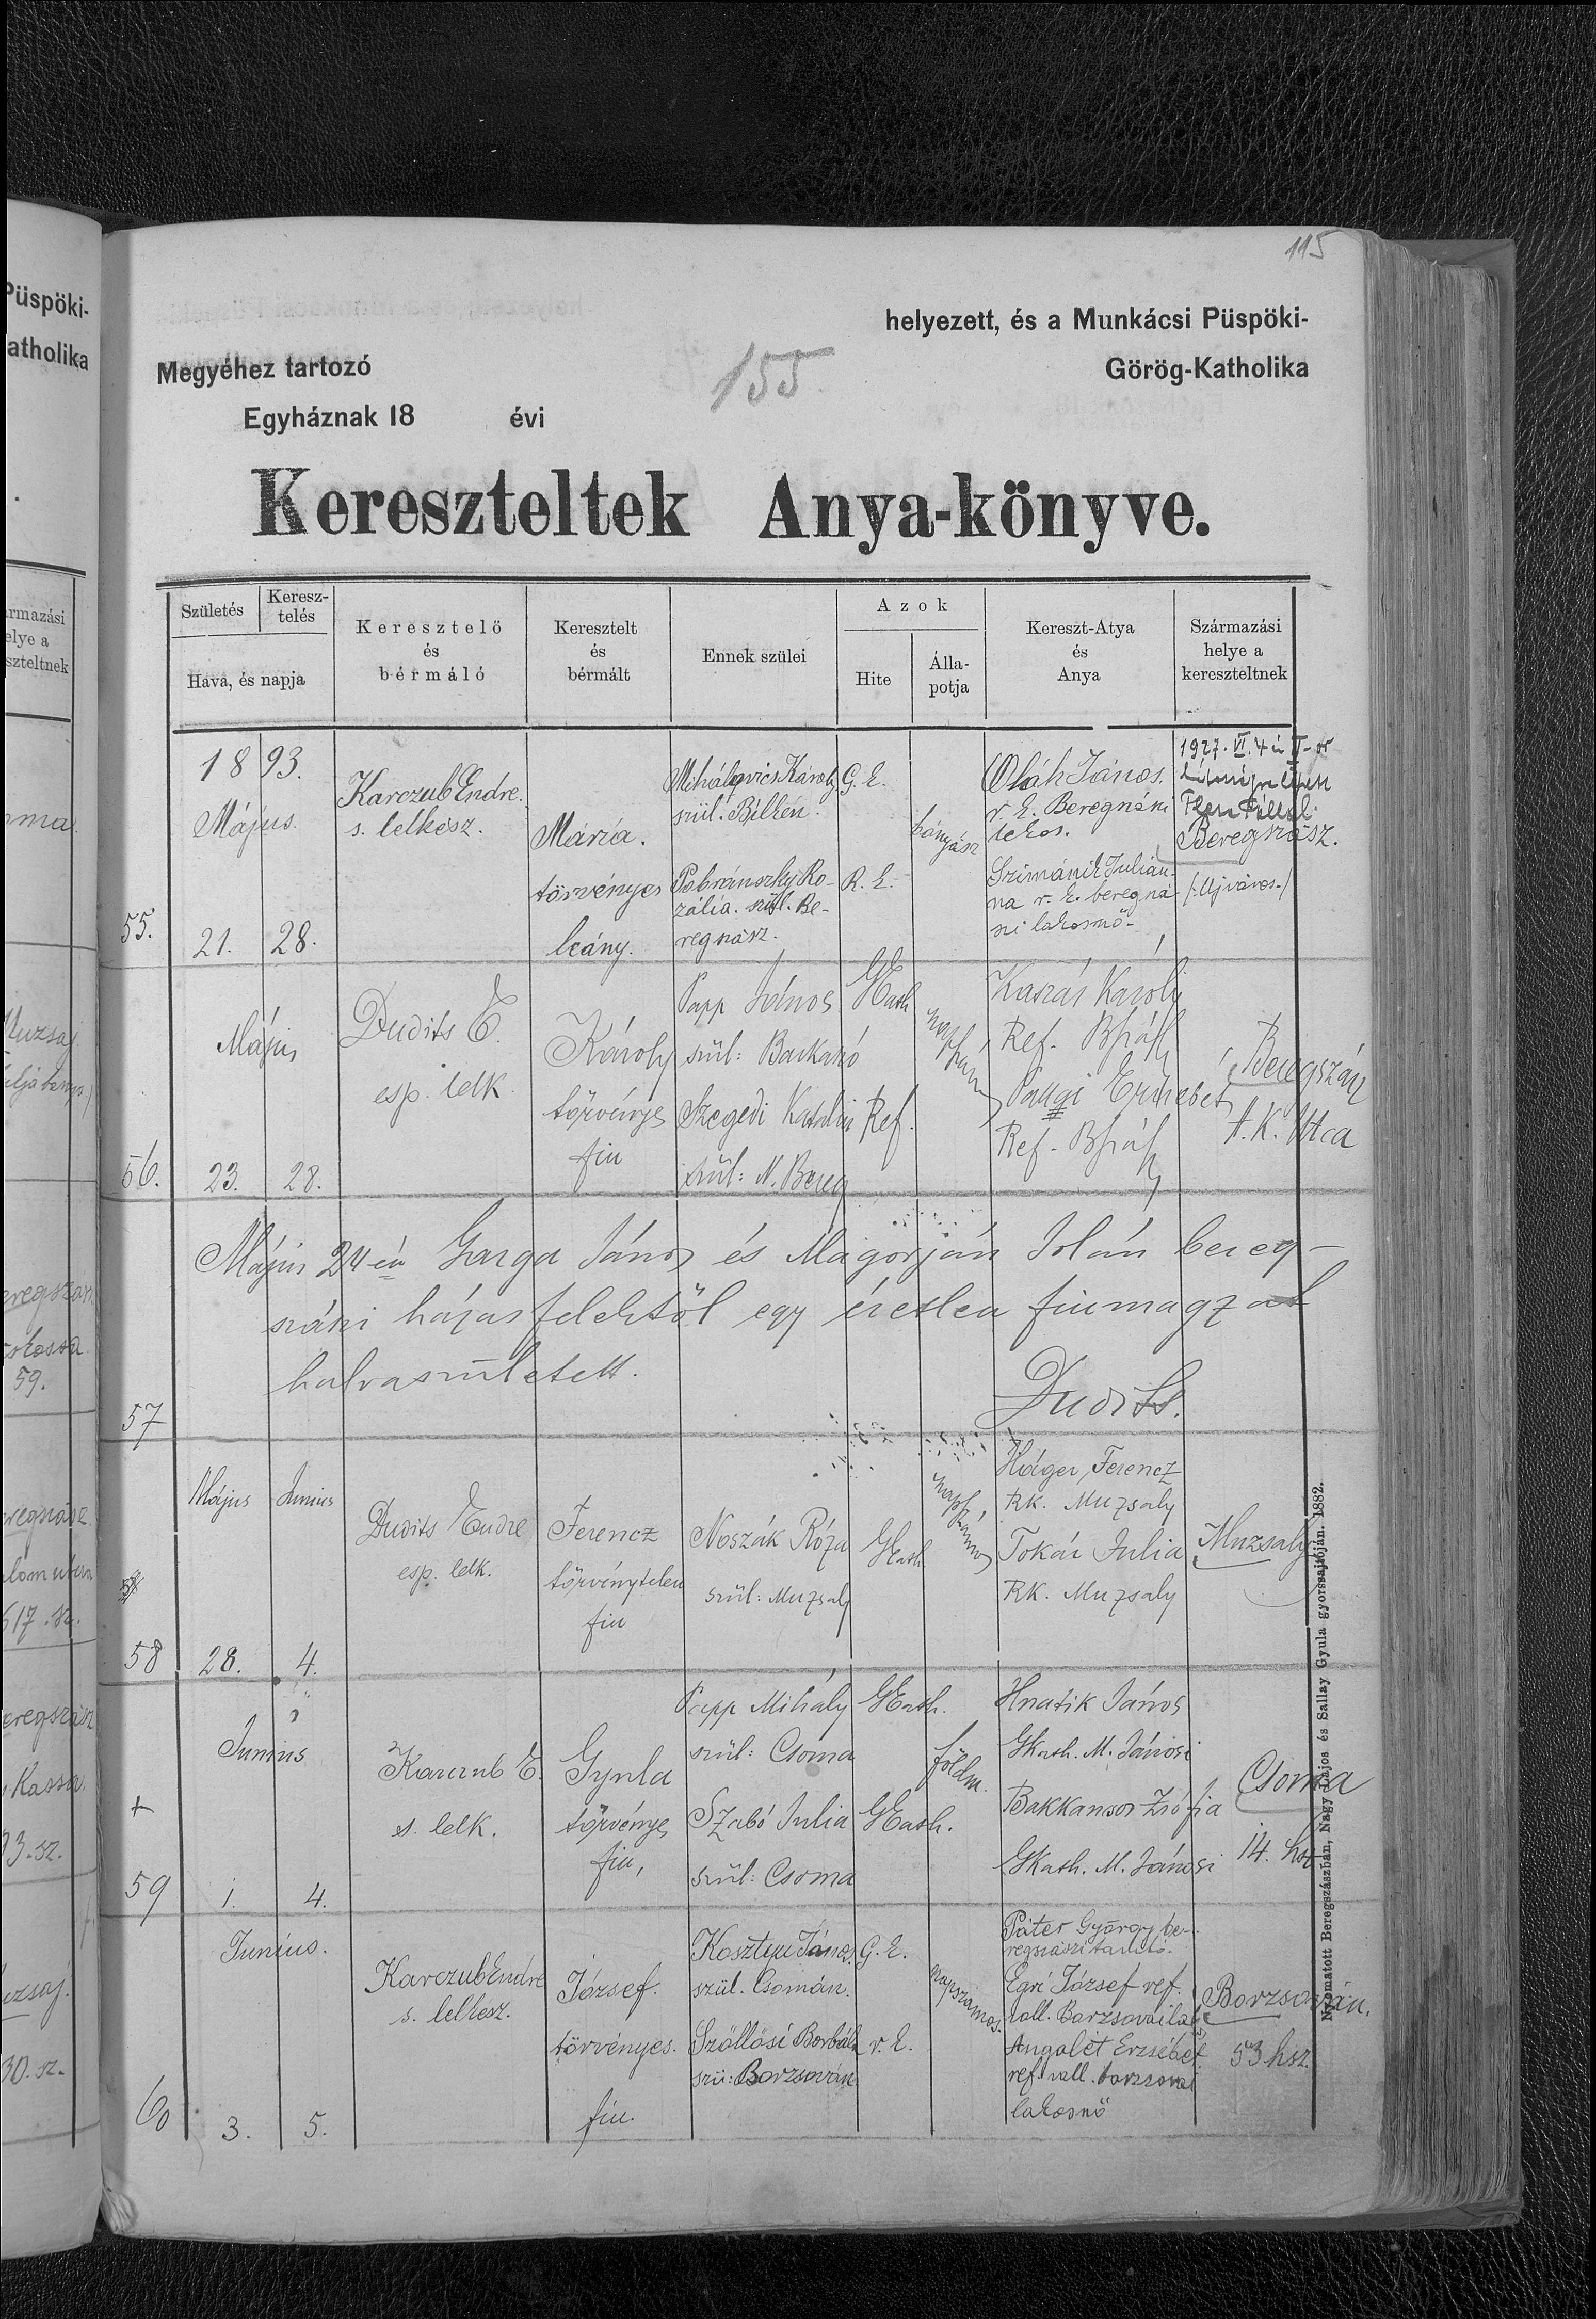 115
helyezett, és a Munkácsi Püspöki-
Megyéhez tartozó
155
Görög-Katholika
Egyháznak 18 évi
Kereszteltek Anya-könyve.
Születés
Keresz-
telés
Hava, és napja
Keresztelő
és
bérmáló
Keresztelt
és
bérmált
Ennek szülei
Azok
Hite
Álla-
potja
Kereszt-Atya
és
Anya
Származási
helye a
kereszteltnek
1893.
Május.
55.
21.
28.
Karczub Endre.
s. lelkész.
Mária.
törvényes
leány.
Mihálovics Károly
szül. Bilken.
Pobránszky Ro-
zália. szül. Be-
regszász.
G. k.
R. k.
bányász
Oláh János.
r. k. Beregszászi
lakos.
Szimánik Julián-
na r. k. beregszá-
szi lakosnő.
1927. VI. 4 én
Beregszász.
/:Ujváros:/
Május
56.
23.
28.
Dudits E.
esp. lelk.
Károly
törvényes
fiu
Papp János
szül: Barkaszó
Szegedi Katalin
szül: N. Bereg
GKath
Ref.
napszám
Kaszás Károly
Ref. Bszász
Pallagi Erzsébet
Ref. Bszász
Beregszász
A. K. Utca
Május 24-én Garga János és Magorján Jolán bereg-
szászi házasfelektől egy éretlen fiumagzat
halvaszületett.
57
Dudits.
Május
Junius
58
28.
4.
Dudits Endre
esp. lelk.
Ferencz
törvénytelen
fiu
Noszák Róza
szül: Muzsaly
GKath
napszámos
Háger Ferencz
RK. Muzsaly
Tokár Julia
RK. Muzsaly
Muzsaly
Junius
59
1.
4.
Karczub E.
s. lelk.
Gyula
törvényes
fiu,
Papp Mihály
szül: Csoma
Szabó Julia
szül: Csoma
GKath.
GKath.
földm.
Hnatik János
GKath. M. Jánosi
Bakkancsos Zsófia
GKath. M. Jánosi
Csoma
14. hsz
Junius.
60
3.
5.
Karczub Endre
s. lelkesz.
József.
törvényes.
fiu.
Kosztyu János.
szül. Csomán.
Szöllősi Borbála
szü: Borzsován
G. k.
r. k.
napszámos.
Páter György be-
regszászi tanító.
Egri József ref.
vall. Borzsovai lak.
Angalét Erzsébet
ref. vall. borzsovai
lakosnő
Borzsován.
53 hsz.
Nyomatott Beregszászban, Nagy Lajos és Sallay Gyula gyorssajtóján. 1882.
Püspöki-
atholika